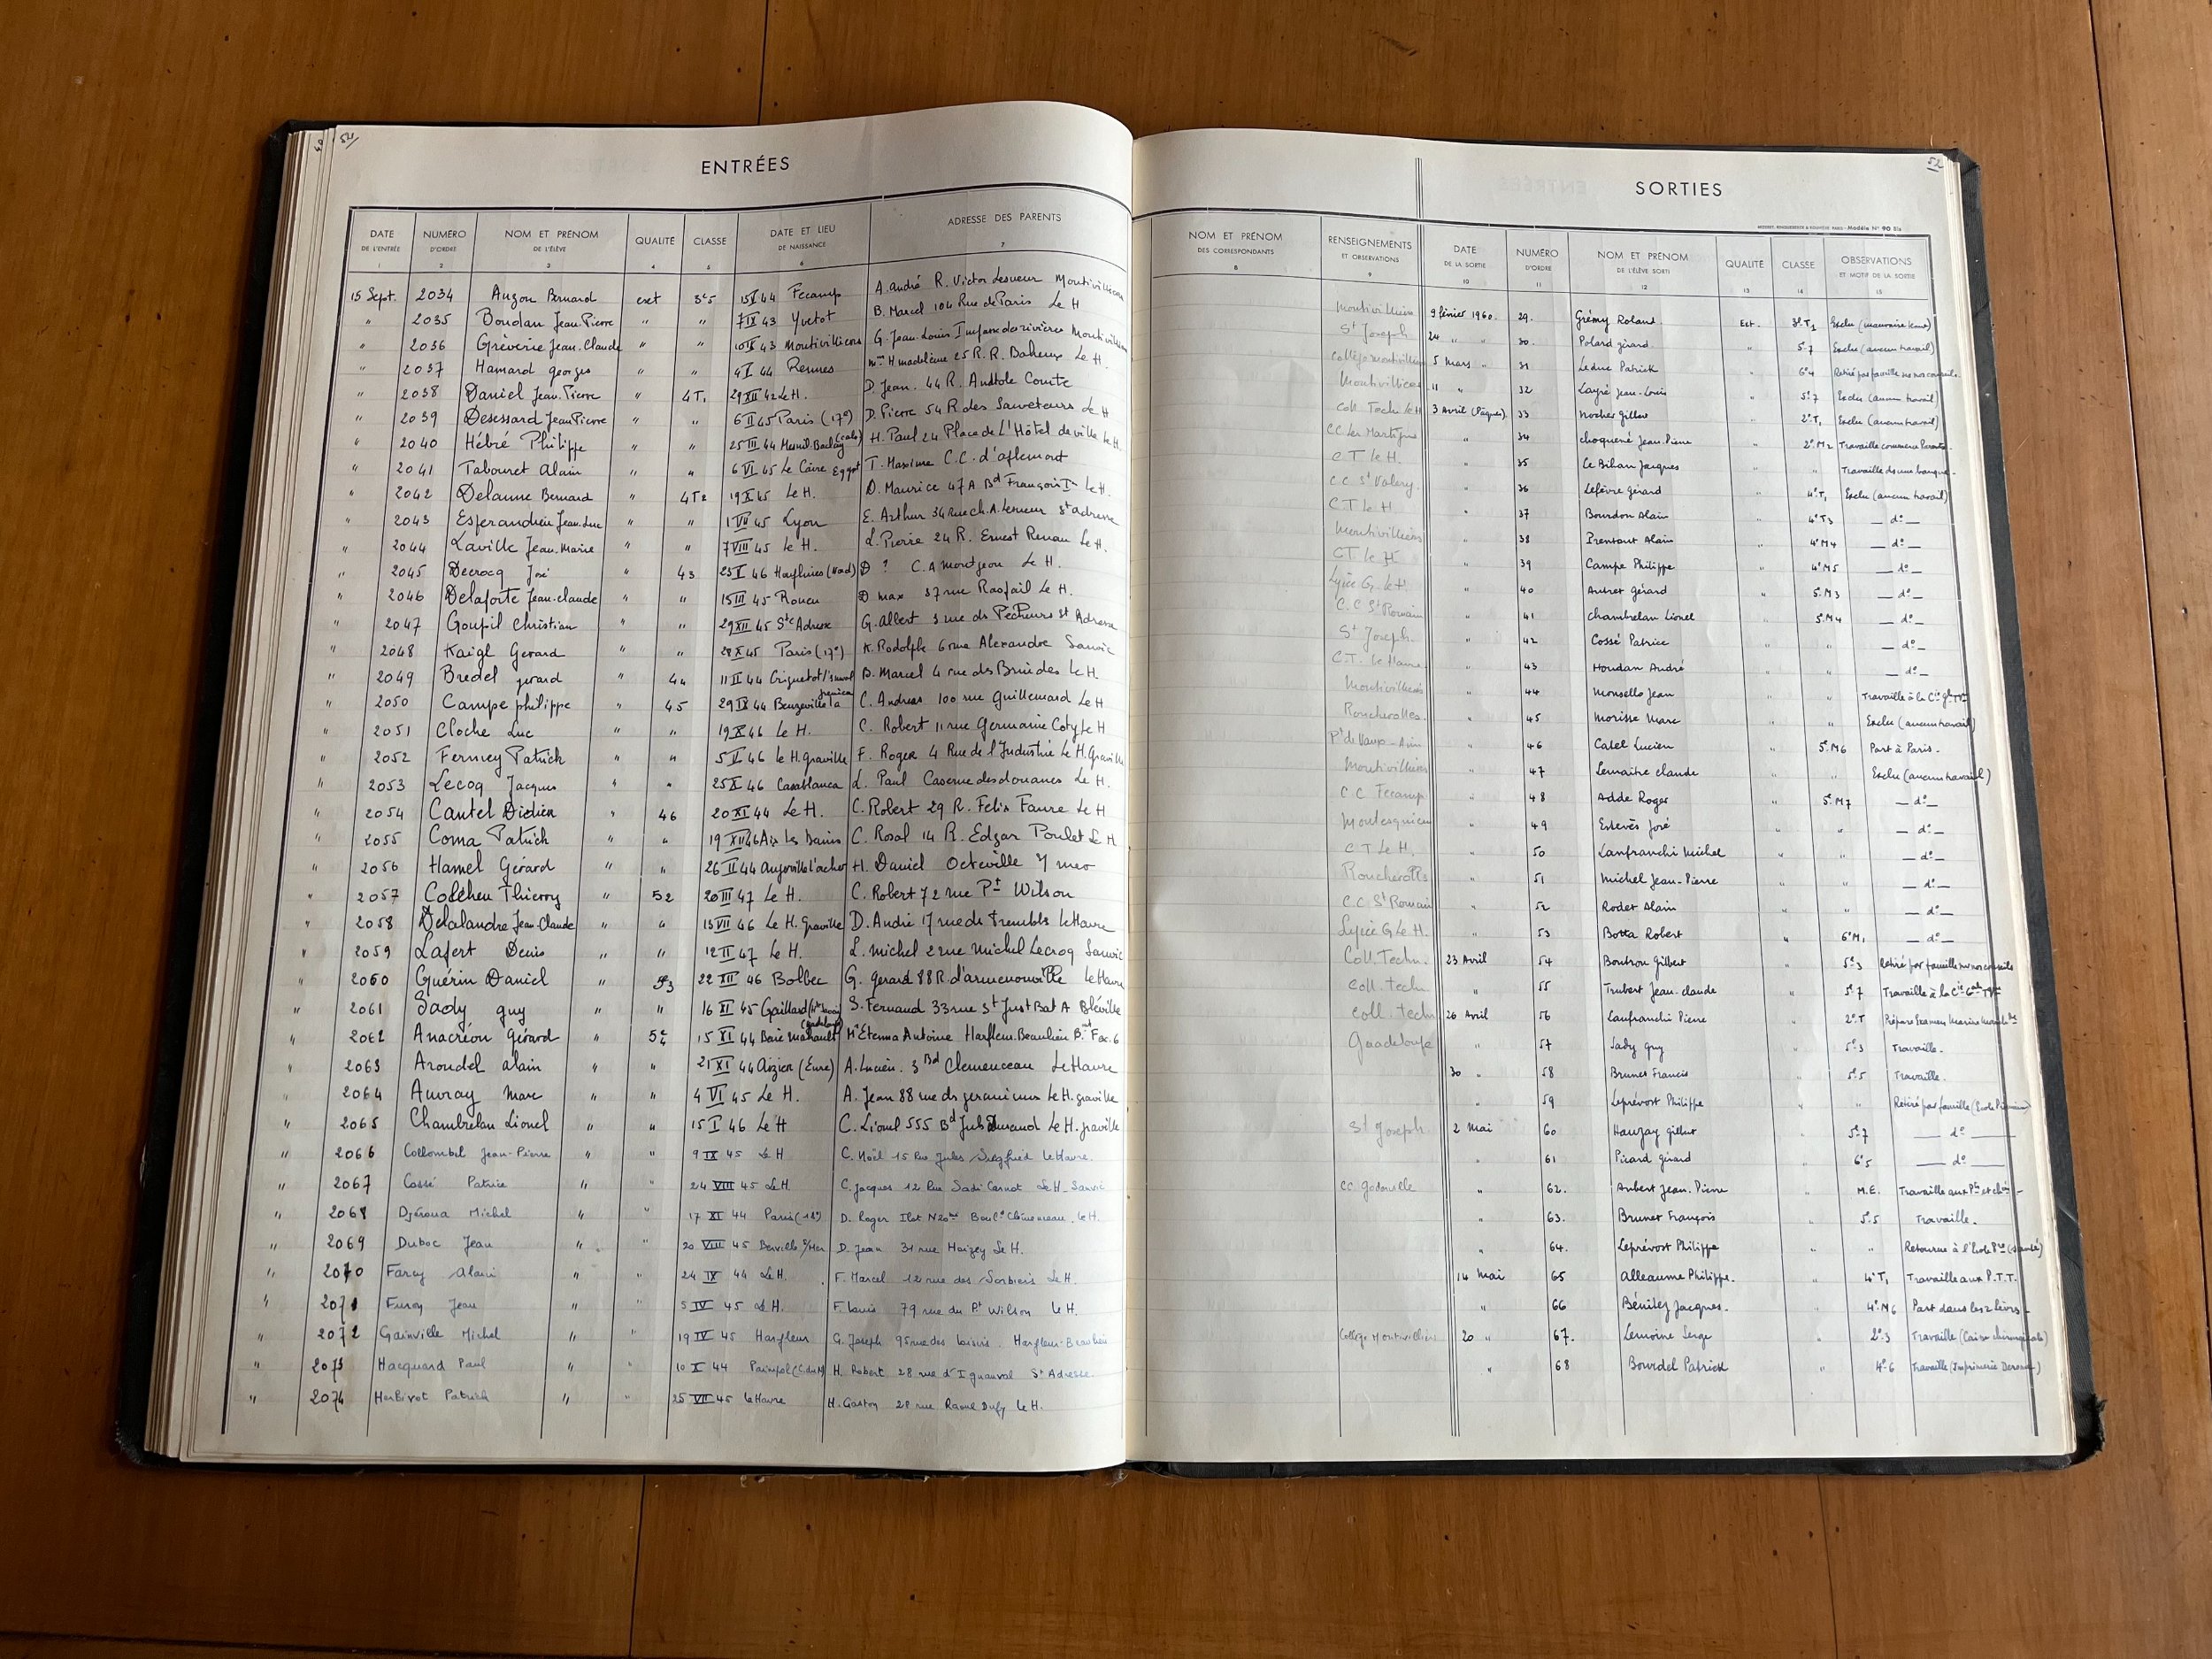 51
ENTRÉES
DATE DE L'ENTRÉE 1
NUMÉRO D'ORDRE 2
NOM ET PRÉNOM DE L'ÉLÈVE 3
QUALITÉ 4
CLASSE 5
DATE ET LIEU DE NAISSANCE 6
ADRESSE DES PARENTS 7
15 Sept. 2034 Auzou Bernard ext 3e5 Fecamp A. André R. Victor Lesueur Montivilliers
" 2035 Boudan Jean-Pierre " " 7 IX 43 Yvetot B. Marcel 104 Rue de Paris Le H
" 2036 Grèverie Jean-Claude " " 43 Montivilliers G. Jean-Louis Impasse des rivières Montivilliers
" 2037 Hamard georges " " 4 I 44 Rennes mme H madeleine 25 R. R. Le H.
" 2038 Daniel Jean-Pierre " 4T1 29 XII 42 Le H. D. Jean. 44 R. Comte
" 2039 Desessard Jean Pierre " " 6 II 45 Paris (17e) D. Pierre 54 R. des Sauveteurs Le H
" 2040 Hébré Philippe " " 25 III 44 H. Paul 24 Place de L'Hôtel de ville Le H.
" 2041 Tabouret Alain " " 6 VI 45 Le Caire Egypt T. Maxime C.C. d'aplemont
" 2042 Delaune Bernard " 4T2 19 X 45 Le H. D. Maurice 47 A Bd François Ier Le H.
" 2043 Esperandieu Jean-Luc " " 1 VII 45 Lyon E. Arthur 34 rue ch. A. Lesueur St adresse
" 2044 Laville Jean-Marie " " 7 VIII 45 Le H. L. Pierre 24 R. Ernest Renan Le H.
" 2045 Decrocq José " 43 23 I 46 (Nord) D ? C. A montgeon Le H.
" 2046 Delaporte Jean-claude " " 15 III 45 Rouen D max 37 rue Raspail Le H.
" 2047 Goupil Christian " " 29 XII 45 Ste Adresse G. Albert 3 rue des Pêcheurs St Adresse
" 2048 Kaigl Gerard " " 28 X 45 Paris (17e) K. Rodolph 6 rue Alexandre Sanvic
" 2049 Bredel gerard " 44 11 II 44 Criquetot B. Marcel 4 rue des Le H.
" 2050 Campe philippe " 45 29 IX 44 Beuzeville la C. Andreas 100 rue Guillemard Le H
" 2051 Cloche Luc " " 19 X 46 Le H. C. Robert 11 rue Germaine Coty Le H
" 2052 Ferney Patrick " " 5 I 46 le H. graville F. Roger 4 Rue de l'Industrie Le H. Graville
" 2053 Lecoq Jacques " " 25 X 46 Casablanca L. Paul Caserne des douanes Le H.
" 2054 Cautel Didier " 46 20 XI 44 Le H. C. Robert 29 R. Felix Faure Le H
" 2055 Coma Patrick " " 19 XII 46 Aix les Bains C. Rosal 14 R. Edgar Poulet Le H
" 2056 Hamel Gérard " " 26 II 44 H. Daniel Octeville s/mer
" 2057 Thierry " 52 20 III 47 Le H. C. Robert 72 rue Pt Wilson
" 2058 Delalandre Jean-Claude " " 15 VII 46 Le H. Graville D. André 17 rue des trembles Le Havre
" 2059 Lafert Denis " " 12 II 47 Le H. L. michel 2 rue Michel Lecroq Sanvic
" 2060 Guérin Daniel " 5e3 22 XII 46 Bolbec G. gerard 88 R. d'armenonville Le Havre
" 2061 Sady guy " " 16 XI 45 S. Fernand 33 rue St Just Bat A Bléville
" 2062 Anacréon Gérard " 15 XI 44 Baie mahault Antoine Harfleur-Beaulieu
" 2063 Aroudel alain " " 21 XI 44 Aizier (Eure) A. Lucien. 3 Bd Clemenceau Le Havre
" 2064 Auvray Marc " " 4 VI 45 Le H. A. Jean 88 rue des geraniums Le H. graville
" 2065 Chambrelan Lionel " " 15 I 46 Le H C. Lionel 555 Bd Jules Durand Le H. graville
" 2066 Collombel Jean-Pierre " " 9 IX 45 Le H C. Noël 15 Rue Jules Siegfried Le Havre.
" 2067 Cossé Patrice " " 24 VIII 45 Le H C. Jacques 12 Rue Sadi Carnot Le H. Sanvic
" 2068 Djéroua Michel " 17 XI 44 Paris (18e) D. Roger Ilot N20 Boul. Clémenceau. Le H.
" 2069 Duboc Jean " " 20 VIII 45 Berville s/Mer D. Jean 31 rue Le H.
" 2070 Farcy Alain " " 24 IX 44 Le H. F. Marcel 12 rue des Sorbiers Le H.
" 2071 Jean " " 5 IV 45 Le H. F. Louis 79 rue du Pt Wilson Le H.
" 2072 Gainville Michel " " 19 IV 45 Harfleur G. Joseph 95 rue des loisirs. Harfleur-Beaulieu
" 2073 Hacquard Paul " " 10 X 44 Paimpol (C. du N) H. Robert 28 rue d'Ignauval St Adresse
" 2074 Patrick " " 25 VII 45 Le Havre H. Gaston 28 rue Raoul Dufy Le H.
52
SORTIES
Modèle N° 90 Bis
NOM ET PRÉNOM DES CORRESPONDANTS 8
RENSEIGNEMENTS ET OBSERVATIONS 9
DATE DE LA SORTIE 10
NUMÉRO D'ORDRE 11
NOM ET PRÉNOM DE L'ÉLÈVE SORTI 12
QUALITÉ 13
CLASSE 14
OBSERVATIONS ET MOTIF DE LA SORTIE 15
Montivilliers 9 février 1960. 29. Grémy Roland. Ext. 3e T1 Exclu (mauvaise tenue)
St Joseph 24 " " 30. Polard gérard " 5e7 Exclu (aucun travail)
Collège montivilliers 5 Mars " 31 Leduc Patrick " 6e4 Retiré par famille sur nos conseils.
Montivilliers 11 " 32 Layré Jean-Louis " 5e7 Exclu (aucun travail)
Coll. Techn Le H 3 Avril (Pâques). 33 Nocher Gilbert " 2e T1 Exclu (aucun travail)
C.C. Les Martigues " 34 choquené Jean-Pierre " 2e M2 Travaille
C T. Le H. " 35 Le Bihan Jacques " " Travaille ds une banque.
C.C. St Valery. " 36 Lefèvre Gérard " 4e T1 Exclu (aucun travail)
C T Le H. " 37 Bourdon Alain " 4e T3 — do —
Montivilliers " 38 Alain " 4e M4 — do —
C.T. Le H " 39 Campe Philippe " 4e M5 — do —
Lycée G. Le H. " 40 Autret Gérard " 5e M3 — do —
C.C St Romain " 41 chambrelan Lionel " 5e M4 — do —
St Joseph. " 42 Cossé Patrice " " — do —
C.T. Le Havre " 43 Houdan André " " — do —
Montivilliers " 44 Monsello Jean " " Travaille à la Cie Gle Tque
Roncherolles. " 45 Morisse Marc " " Exclu (aucun travail)
Pt de Vaux - Ain " 46 Catel Lucien " 5e M6 Part à Paris.
Montivilliers " 47 Lemaitre claude " " Exclu (aucun travail)
C C Fecamp " 48 Adde Roger " 5e M7 — do —
Montesquieu " 49 Estevès José " " — do —
C T Le H. " 50 Lanfranchi Michel " " — do —
Roncherolles " 51 Michel Jean-Pierre " " — do —
C.C St Romain " 52 Rodet Alain " " — do —
Lycée G Le H. " 53 Botta Robert " 6e M1 — do —
Coll. Techn. 23 Avril 54 Boutron Gilbert " 5e3 Retiré par famille sur nos conseils
Coll. techn " 55 Trubert Jean-claude " 5e7 Travaille à la Cie Gale Tque
Coll. techn 26 Avril 56 Lanfranchi Pierre " 2e T Prépare Examen Marine Marchde
Guadeloupe " 57 Sady Guy " 5e3 Travaille.
30 " 58 Brunet Francis " 5e5 Travaille.
" 59 Leprévost Philippe " " Retiré par famille
St Joseph 2 Mai 60 Hauzay Gilbert " 5e7 — do —
" 61 Picard Gérard " 6e5 — do —
CC. godarville " 62. Aubert Jean-Pierre " M.E. Travaille aux Pts et chées
" 63. Brunet François " 5e5 Travaille.
" 64. Leprévost Philippe " " Retourne à l'Ecole Pre (santé)
14 Mai 65 Alleaume Philippe. " 4e T1 Travaille aux P.T.T.
" 66 Bénitez Jacques. " 4e M6 Part dans les
Collège Montivilliers 20 " 67. Lemoine Serge " 2e3 Travaille (Caisse chirurgicale)
" 68 Bourdel Patrick " 4e6 Travaille (Imprimerie